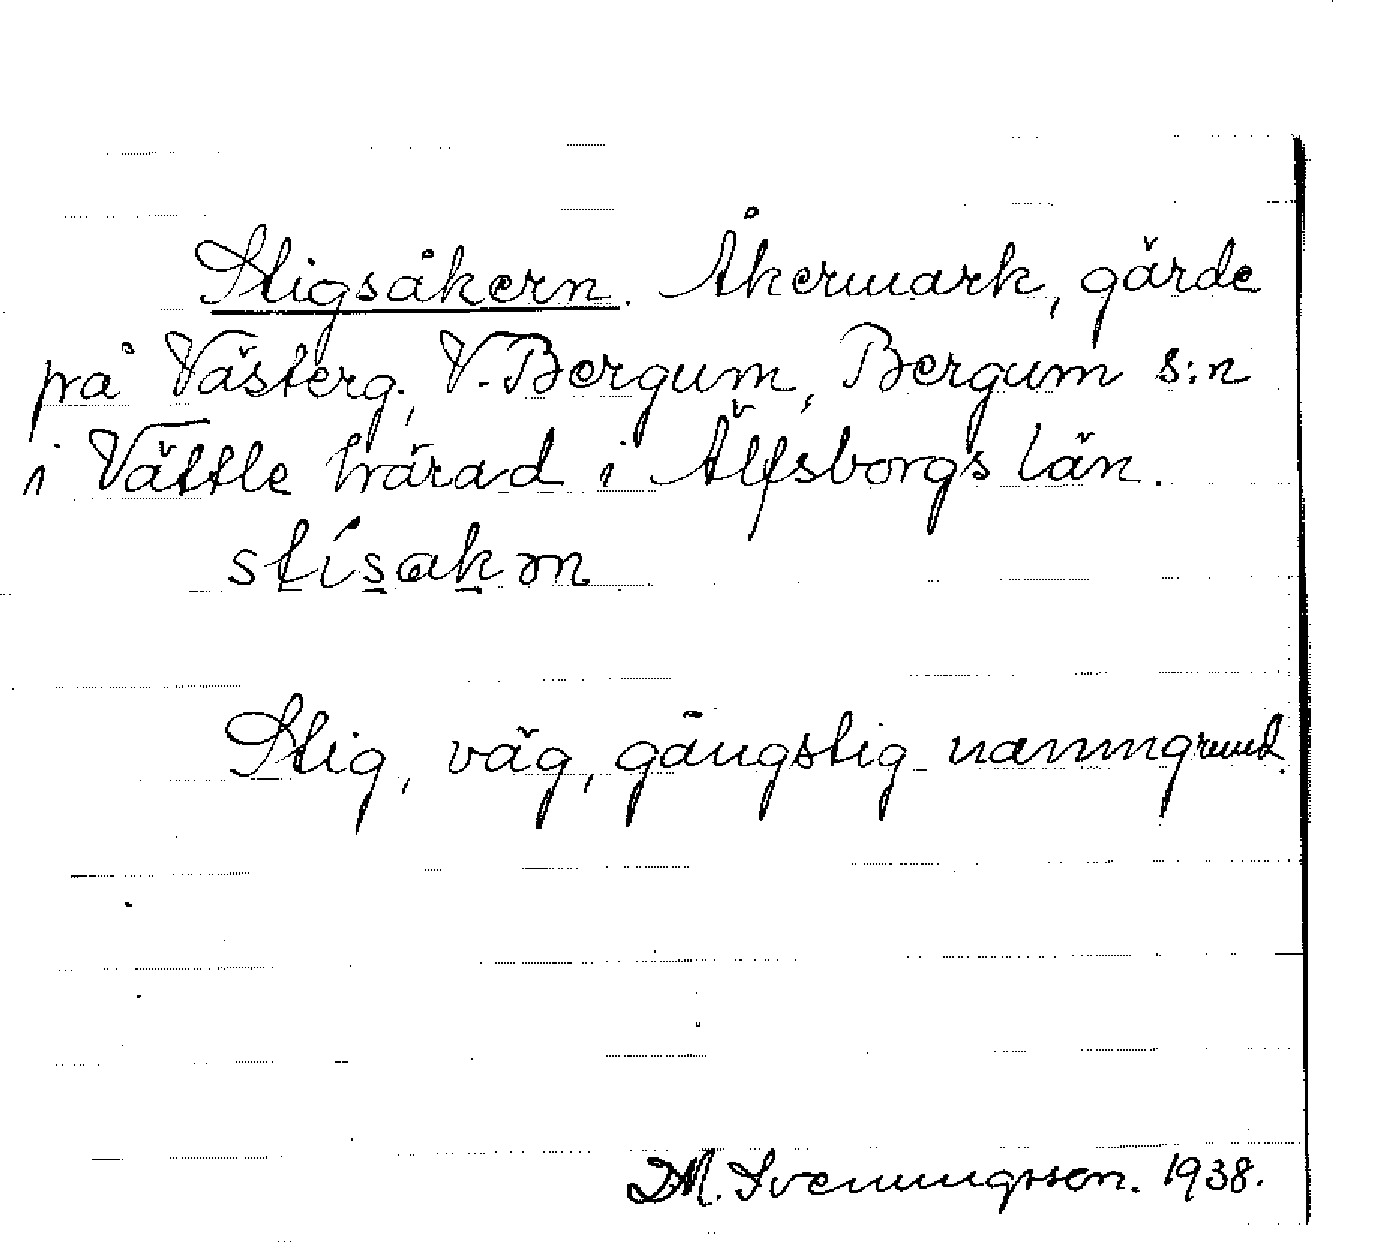 Stigsåkern. Åkermark, gärde
på Västerg., V. Bergum, Bergum s:n
i Vättle härad i Älfsborgs län.
stísakən
Stig, väg, gångstig namngrund.
D.M. Svenningsson. 1938.